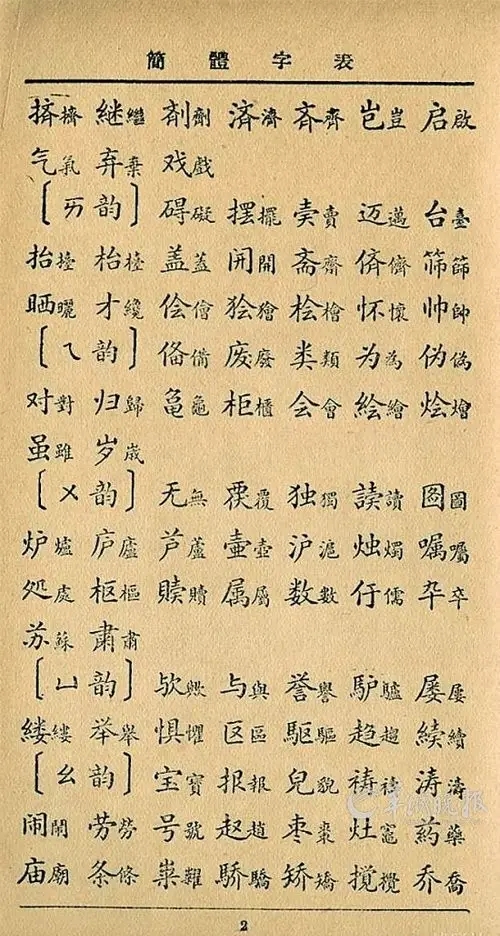 簡體字表
挤擠 継繼 剂劑 済濟 斉齊 岂豈 启啟
气氣 弃棄 戏戲
〔ㄞ韵〕 碍礙 摆擺 卖賣 迈邁 台臺
抬擡 枱檯 盖蓋 开開 斋齋 侪儕 筛篩
晒曬 才纔 侩儈 狯獪 桧檜 怀懷 帅帥
〔ㄟ韵〕 俻備 废廢 类類 为為 伪偽
对對 归歸 亀龜 柜櫃 会會 絵繪 烩燴
虽雖 岁歲
〔ㄨ韵〕 无無 覄覆 独獨 読讀 図圖
炉爐 庐廬 芦蘆 壷壺 沪滬 烛燭 嘱囑
处處 枢樞 赎贖 属屬 数數 㐰儒 卒
苏蘇 肃肅
〔ㄩ韵〕 欤歟 与與 誉譽 馿驢 屡屢
缕縷 举舉 惧懼 区區 駆驅 趋趨 続續
〔ㄠ韵〕 宝寶 报報 皃貌 祷禱 涛濤
闹鬧 劳勞 号號 赵趙 枣棗 灶竈 葯藥
庙廟 条條 粜糶 骄驕 矫矯 搅攪 乔喬
2